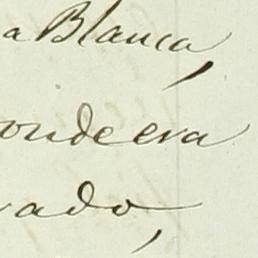 a Blanca,
onde era
vado,